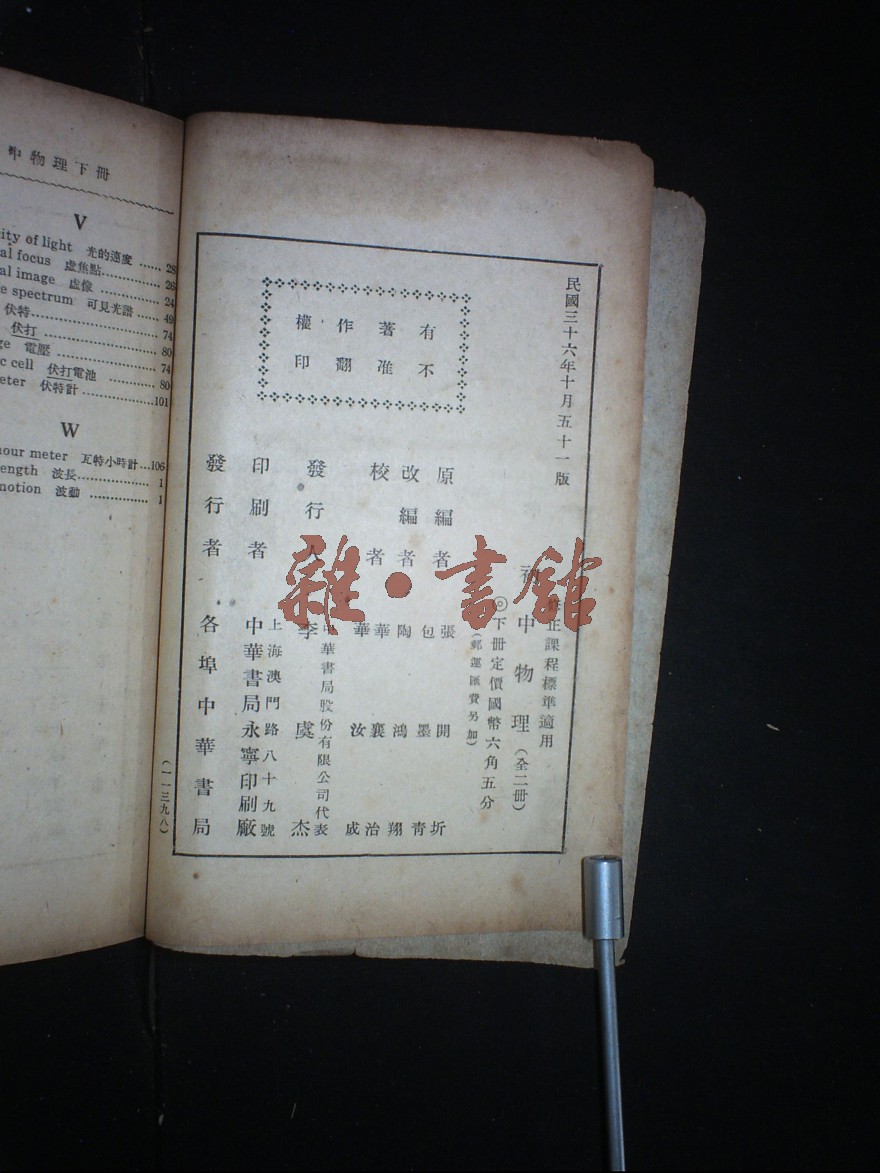 中物理下冊
V
ity of light 光的速度 ...... 28
al focus 虛焦點 ...... 26
al image 虛像 ...... 24
e spectrum 可見光譜 ..... 49
伏特 ...... 74
伏打 ...... 80
ge 電壓 ...... 74
c cell 伏打電池 ...... 80
eter 伏特計 ...... 101
W
hour meter 瓦特小時計 ...106
ength 波長 ...... 1
notion 波動 ...... 1
民國三十六年十月五十一版
有著作權
不准翻印
正課程標準適用
初中物理(全二冊)
下冊定價國幣六角五分
(郵運匯費另加)
原編者 張開圻
包墨青
改編者 陶鴻翔
校者 華襄治
華汝成
發行人 中華書局股份有限公司代表
李虞杰
印刷者 上海澳門路八十九號
中華書局永寧印刷廠
發行者 各埠中華書局
(一一三九八)
雜·書館